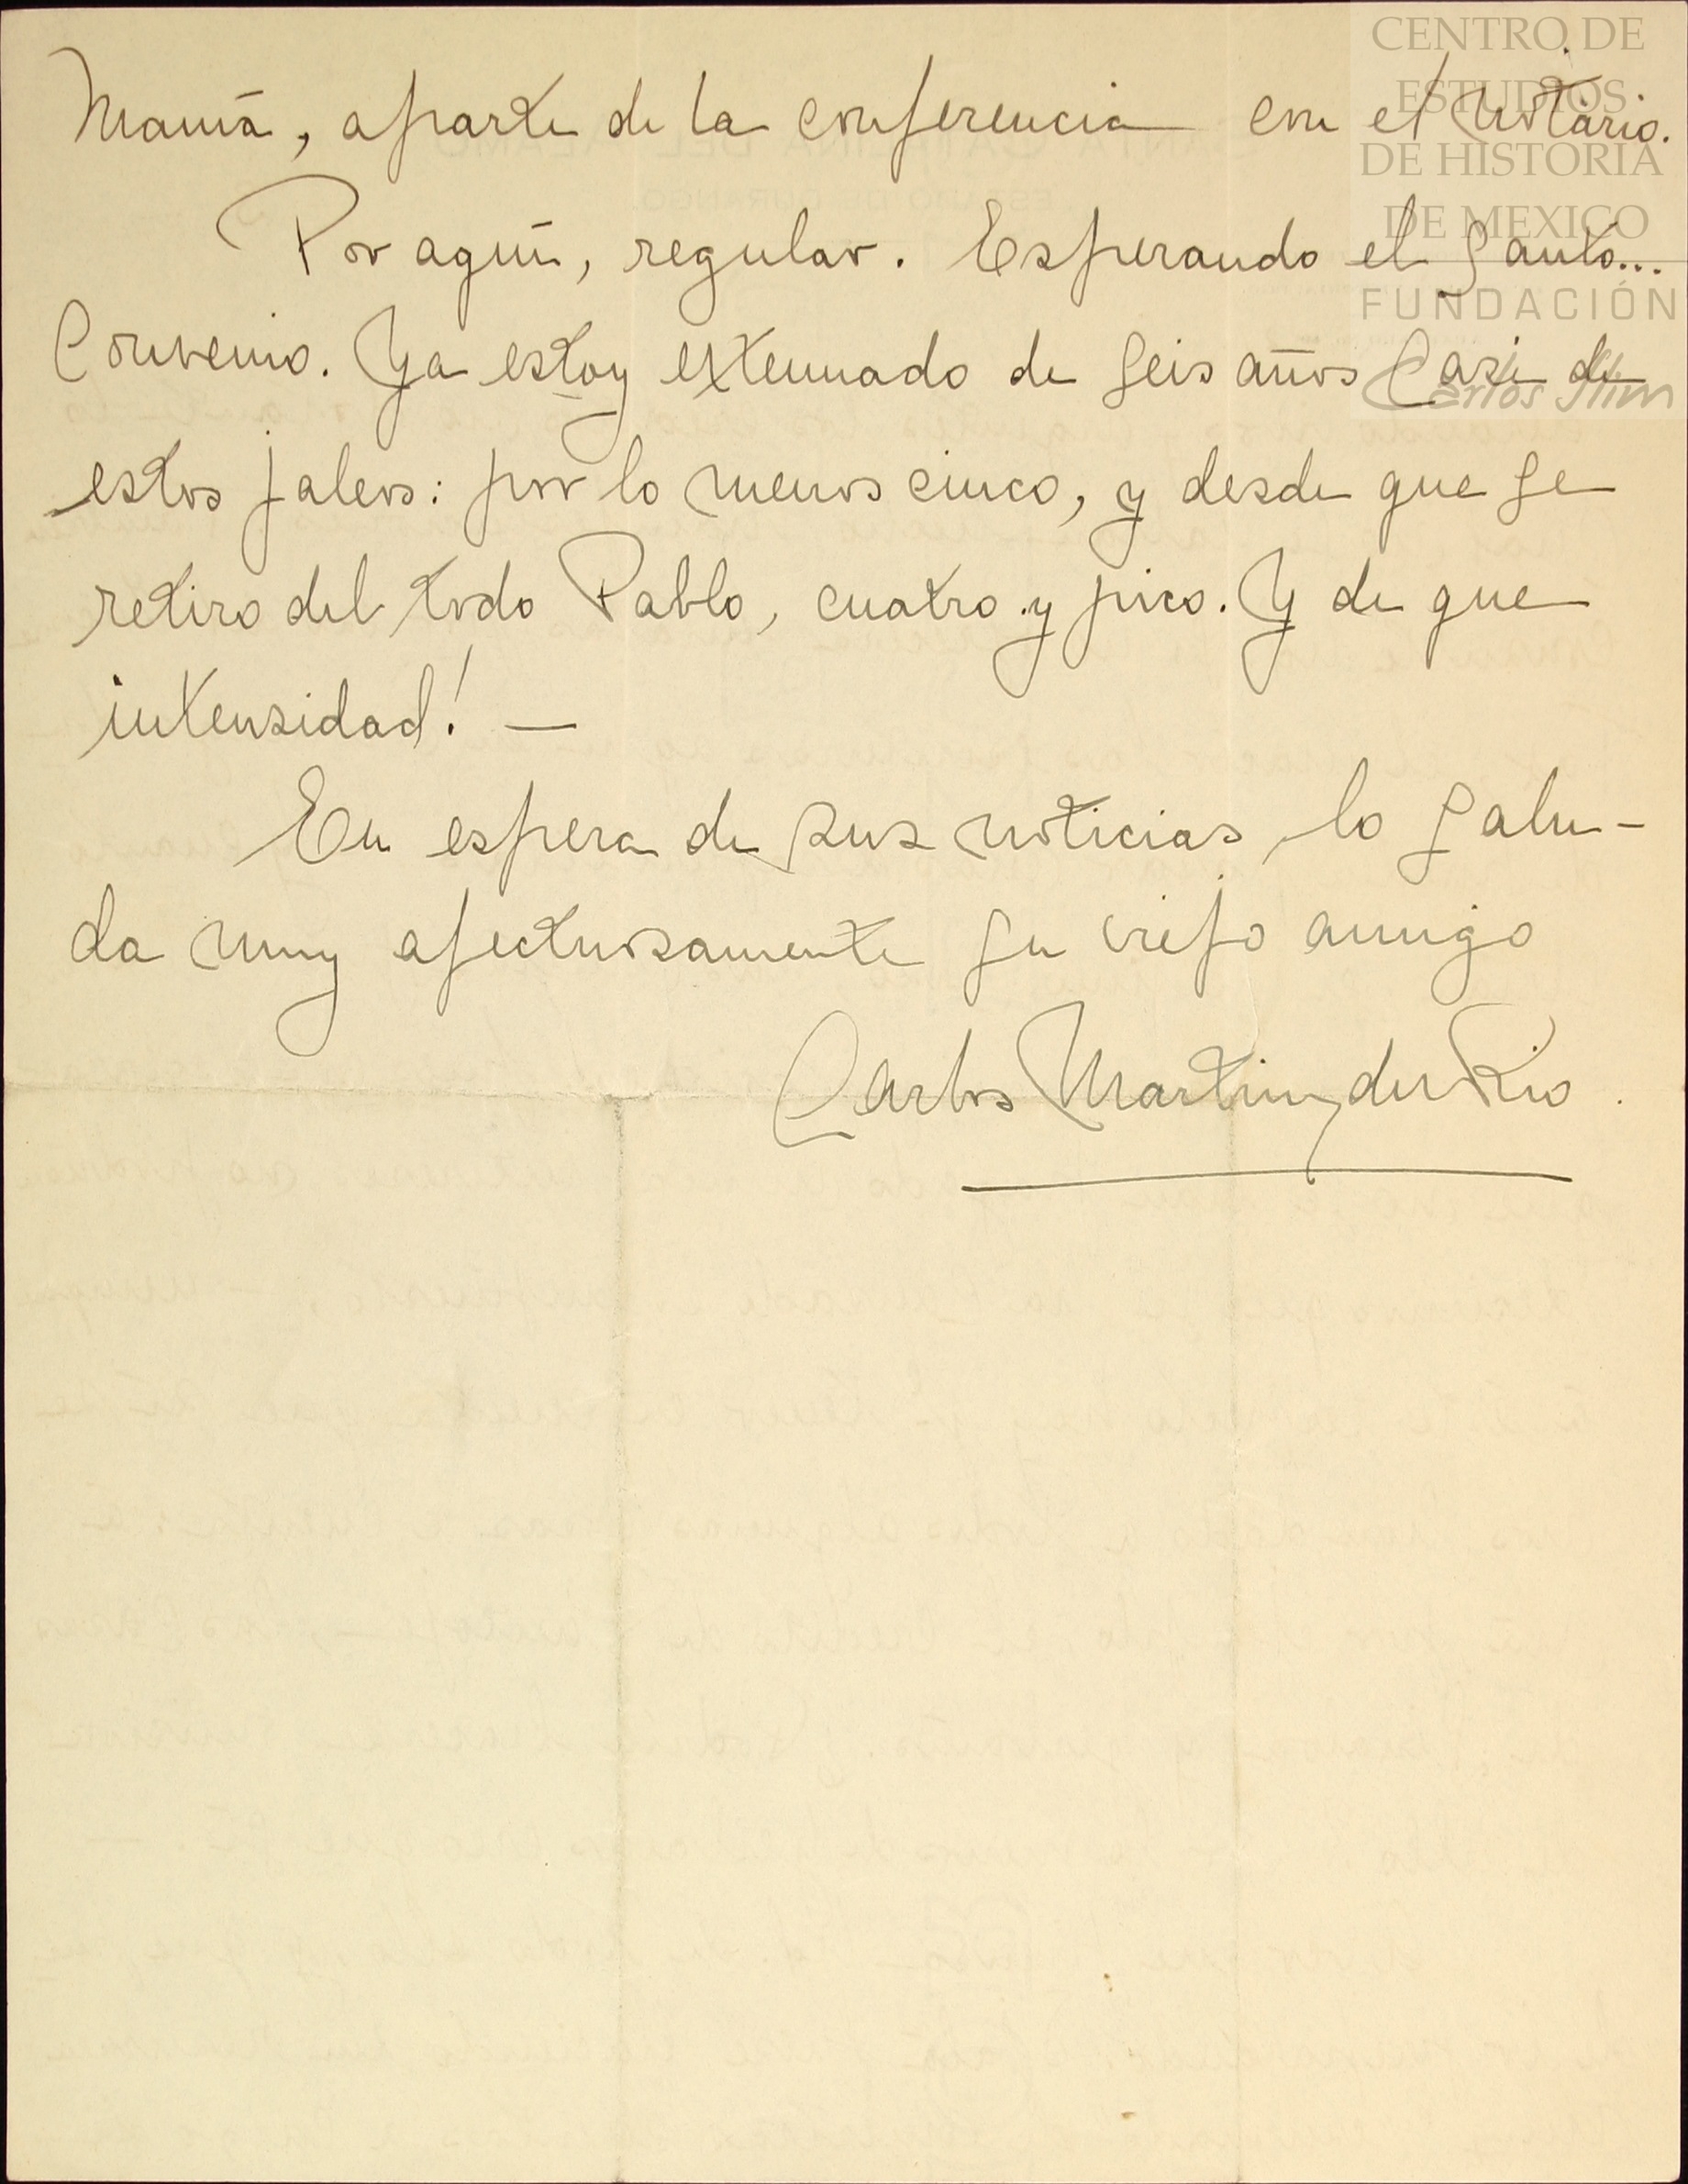 CENTRO DE
ESTUDIOS
DE HISTORIA
DE MEXICO
FUNDACIÓN
Carlos Slim
Mamá, aparte de la conferencia con el Notario.
Por aquí, regular. Esperando el Santo...
Convenio. Ya estoy extenuado de seis años casi de
estos jaleos: por lo menos cinco, y desde que se
retiro del todo Pablo, cuatro y pico. Y de que
intensidad! —
En espera de sus noticias, lo salu-
da muy afectuosamente su viejo amigo
Carlos Martínez del Río.